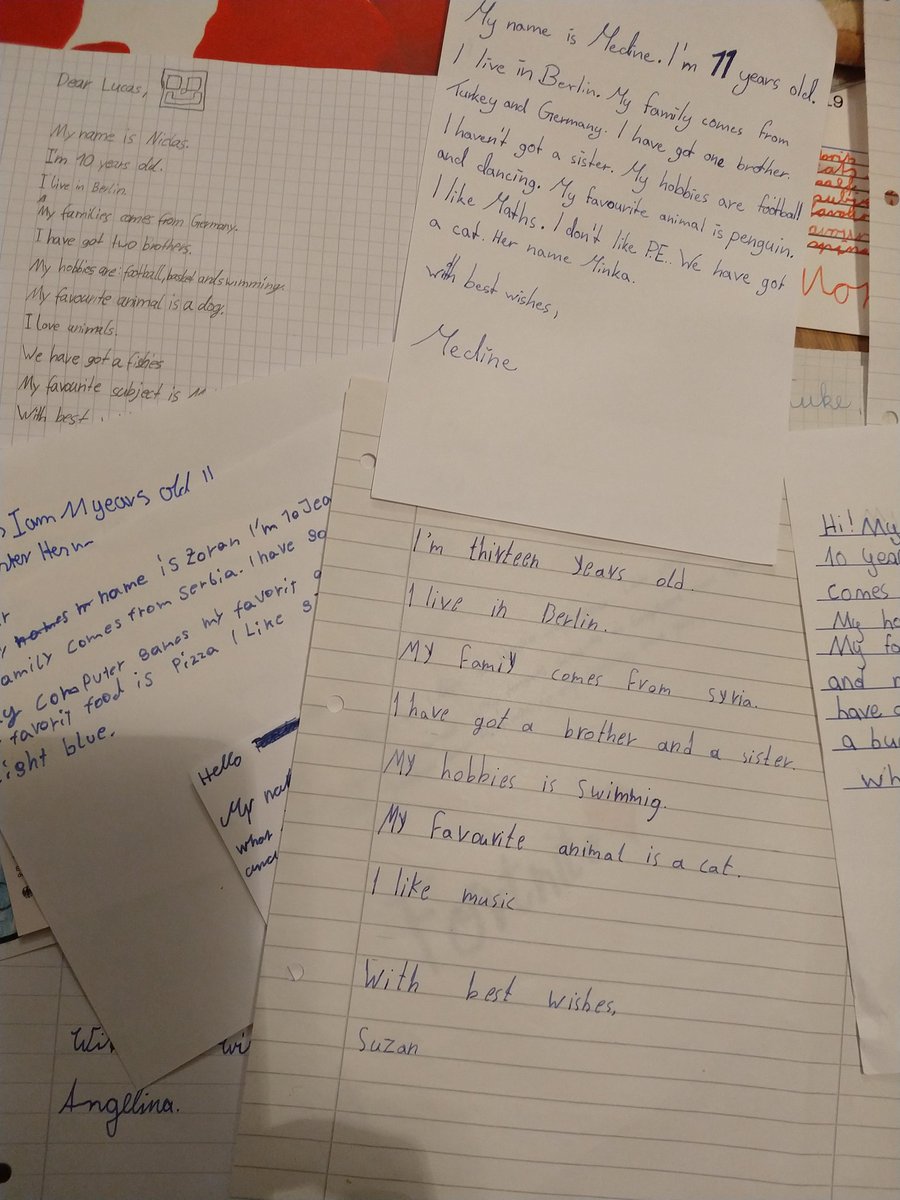 Dear Lucas,
My name is Niclas.
I'm 10 years old.
I live in Berlin.
My families comes from Germany.
I have got two brothers.
My hobbies are: football, basket and swimming.
My favourite animal is a dog.
I love animals.
We have got a fishes
My favourite subject is
With best
My name is Medine. I'm 11 years old.
I live in Berlin. My family comes from
Turkey and Germany. I have got one brother.
I haven't got a sister. My hobbies are football
and dancing. My favourite animal is penguin.
I like Maths. I don't like P.E. We have got
a cat. Her name Minka.
With best wishes,
Medine
I am 11 years old
name is Zoran I'm 10
family comes from Serbia. I have
computer games my favorit
favorit food is Pizza I Like
light blue.
Hello
My
what
I'm thirteen years old.
I live in Berlin.
My famiy comes from syria.
I have got a brother and a sister.
My hobbies is swimmig.
My favourite animal is a cat.
I like music
With best wishes,
Suzan
Hi! My
10
comes
My
My
and
have
a
Angelina.